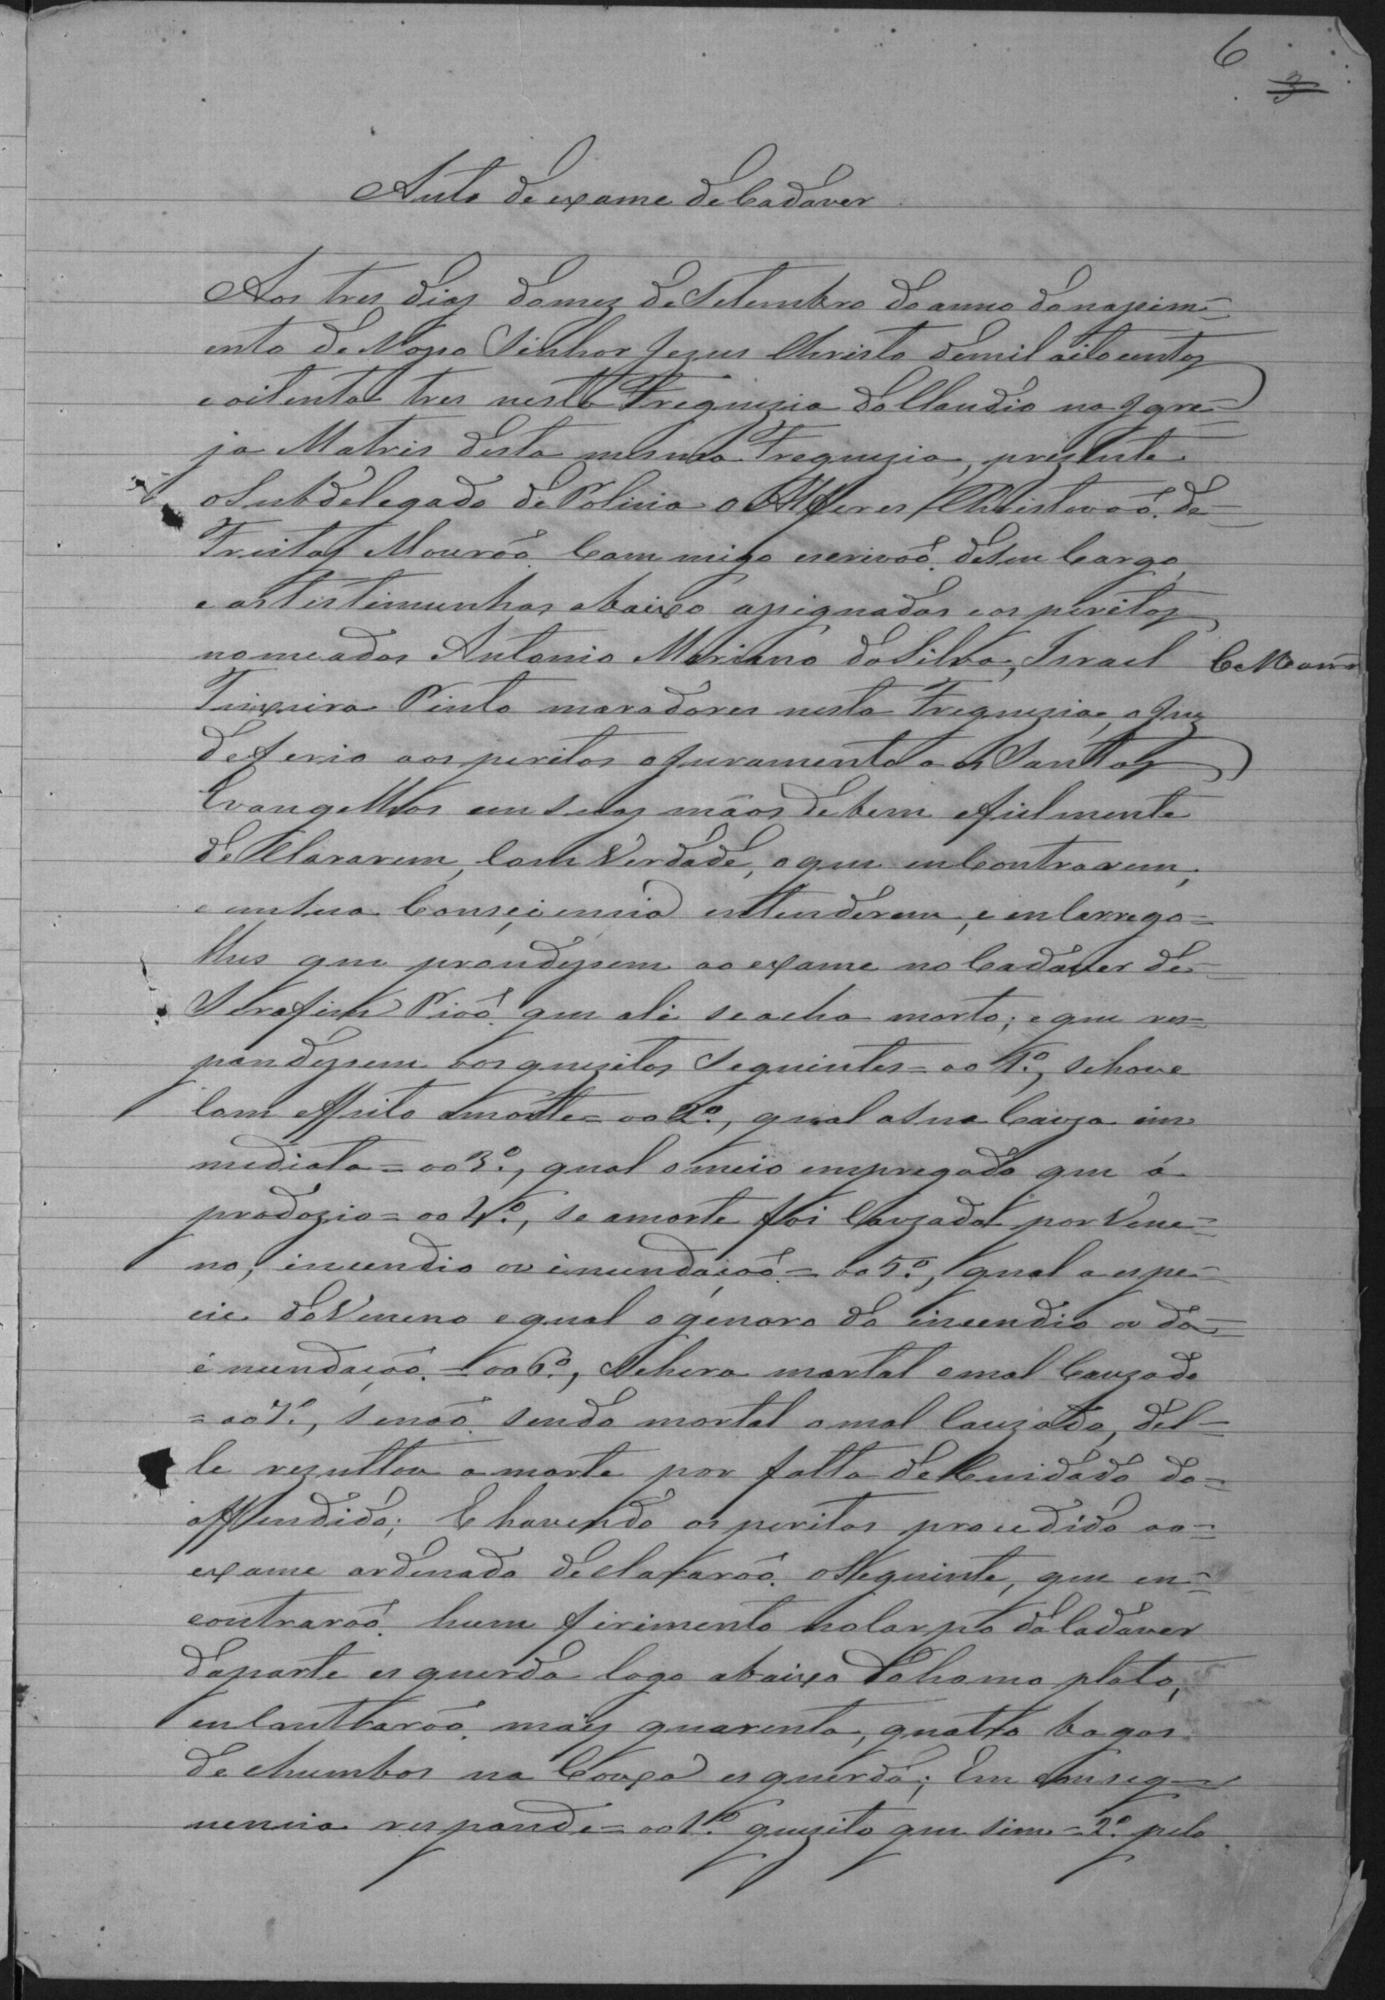 6
3
Auto de exame de Cadaver
Aos tres dias do mez de Setembro do anno do nascim=
ento de Nosso Sinhor Jezus Christo de mil oitocentos
e oitenta tres nesta Freguezia do Claudio na Igre=
ja Matris desta mesma Freguezia, prezente
o Subdelegado de Policia o Alferes Christovaõ de=
Freitas Mouraõ Commigo escrivaõ de seu Cargo,
e as testimunhas abaixo assignadas e os peritos
nomeados Antonio Mariano da Silva, Israel
Teixeira Pinto moradores nesta Freguezia, o Juz
deferio aos peritos o juramento a os Santos
Evangelhos em suas mãos de bem e fielmente
declararem, Com Verdade, o que enContrarem,
e em sua Conseiencia entenderem, e enCarrego=
lhes que prosedessem ao exame no Cadaver de=
Serafim Pioõ que ali se acha morto; e que res=
pondessem aos quezitos seguintes = ao 1º, se hove
Com effeito a morte = ao 2º, qual a sua Cauza im
mediata = ao 3º, qual o meio empregado que á
prodozio = ao 4º, se a morte foi Cauzada por Vene=
no, incendio ou inundaçaõ = ao 5º, qual a espe=
cie do Veneno e qual o genoro do incendio ou da=
inundaçaõ = ao 6º, se hera mortal o mal Cauzado
= ao 7º, se naõ sendo mortal o mal Cauzado, del=
le rezultou a morte por falta de Cuidado do=
offendido; E havendo os peritos procedido ao=
exame ordenado declararaõ o seguinte, que en=
contraraõ hum firimento no Corpo do Cadaver
da parte esquerda logo abaixo do homo plato,
enContraraõ mais quarenta, quatro bagos
de chumbos na Couxa esquerda; Em conseq=
uencia responde = ao 1º quezito que sim = 2º pelo